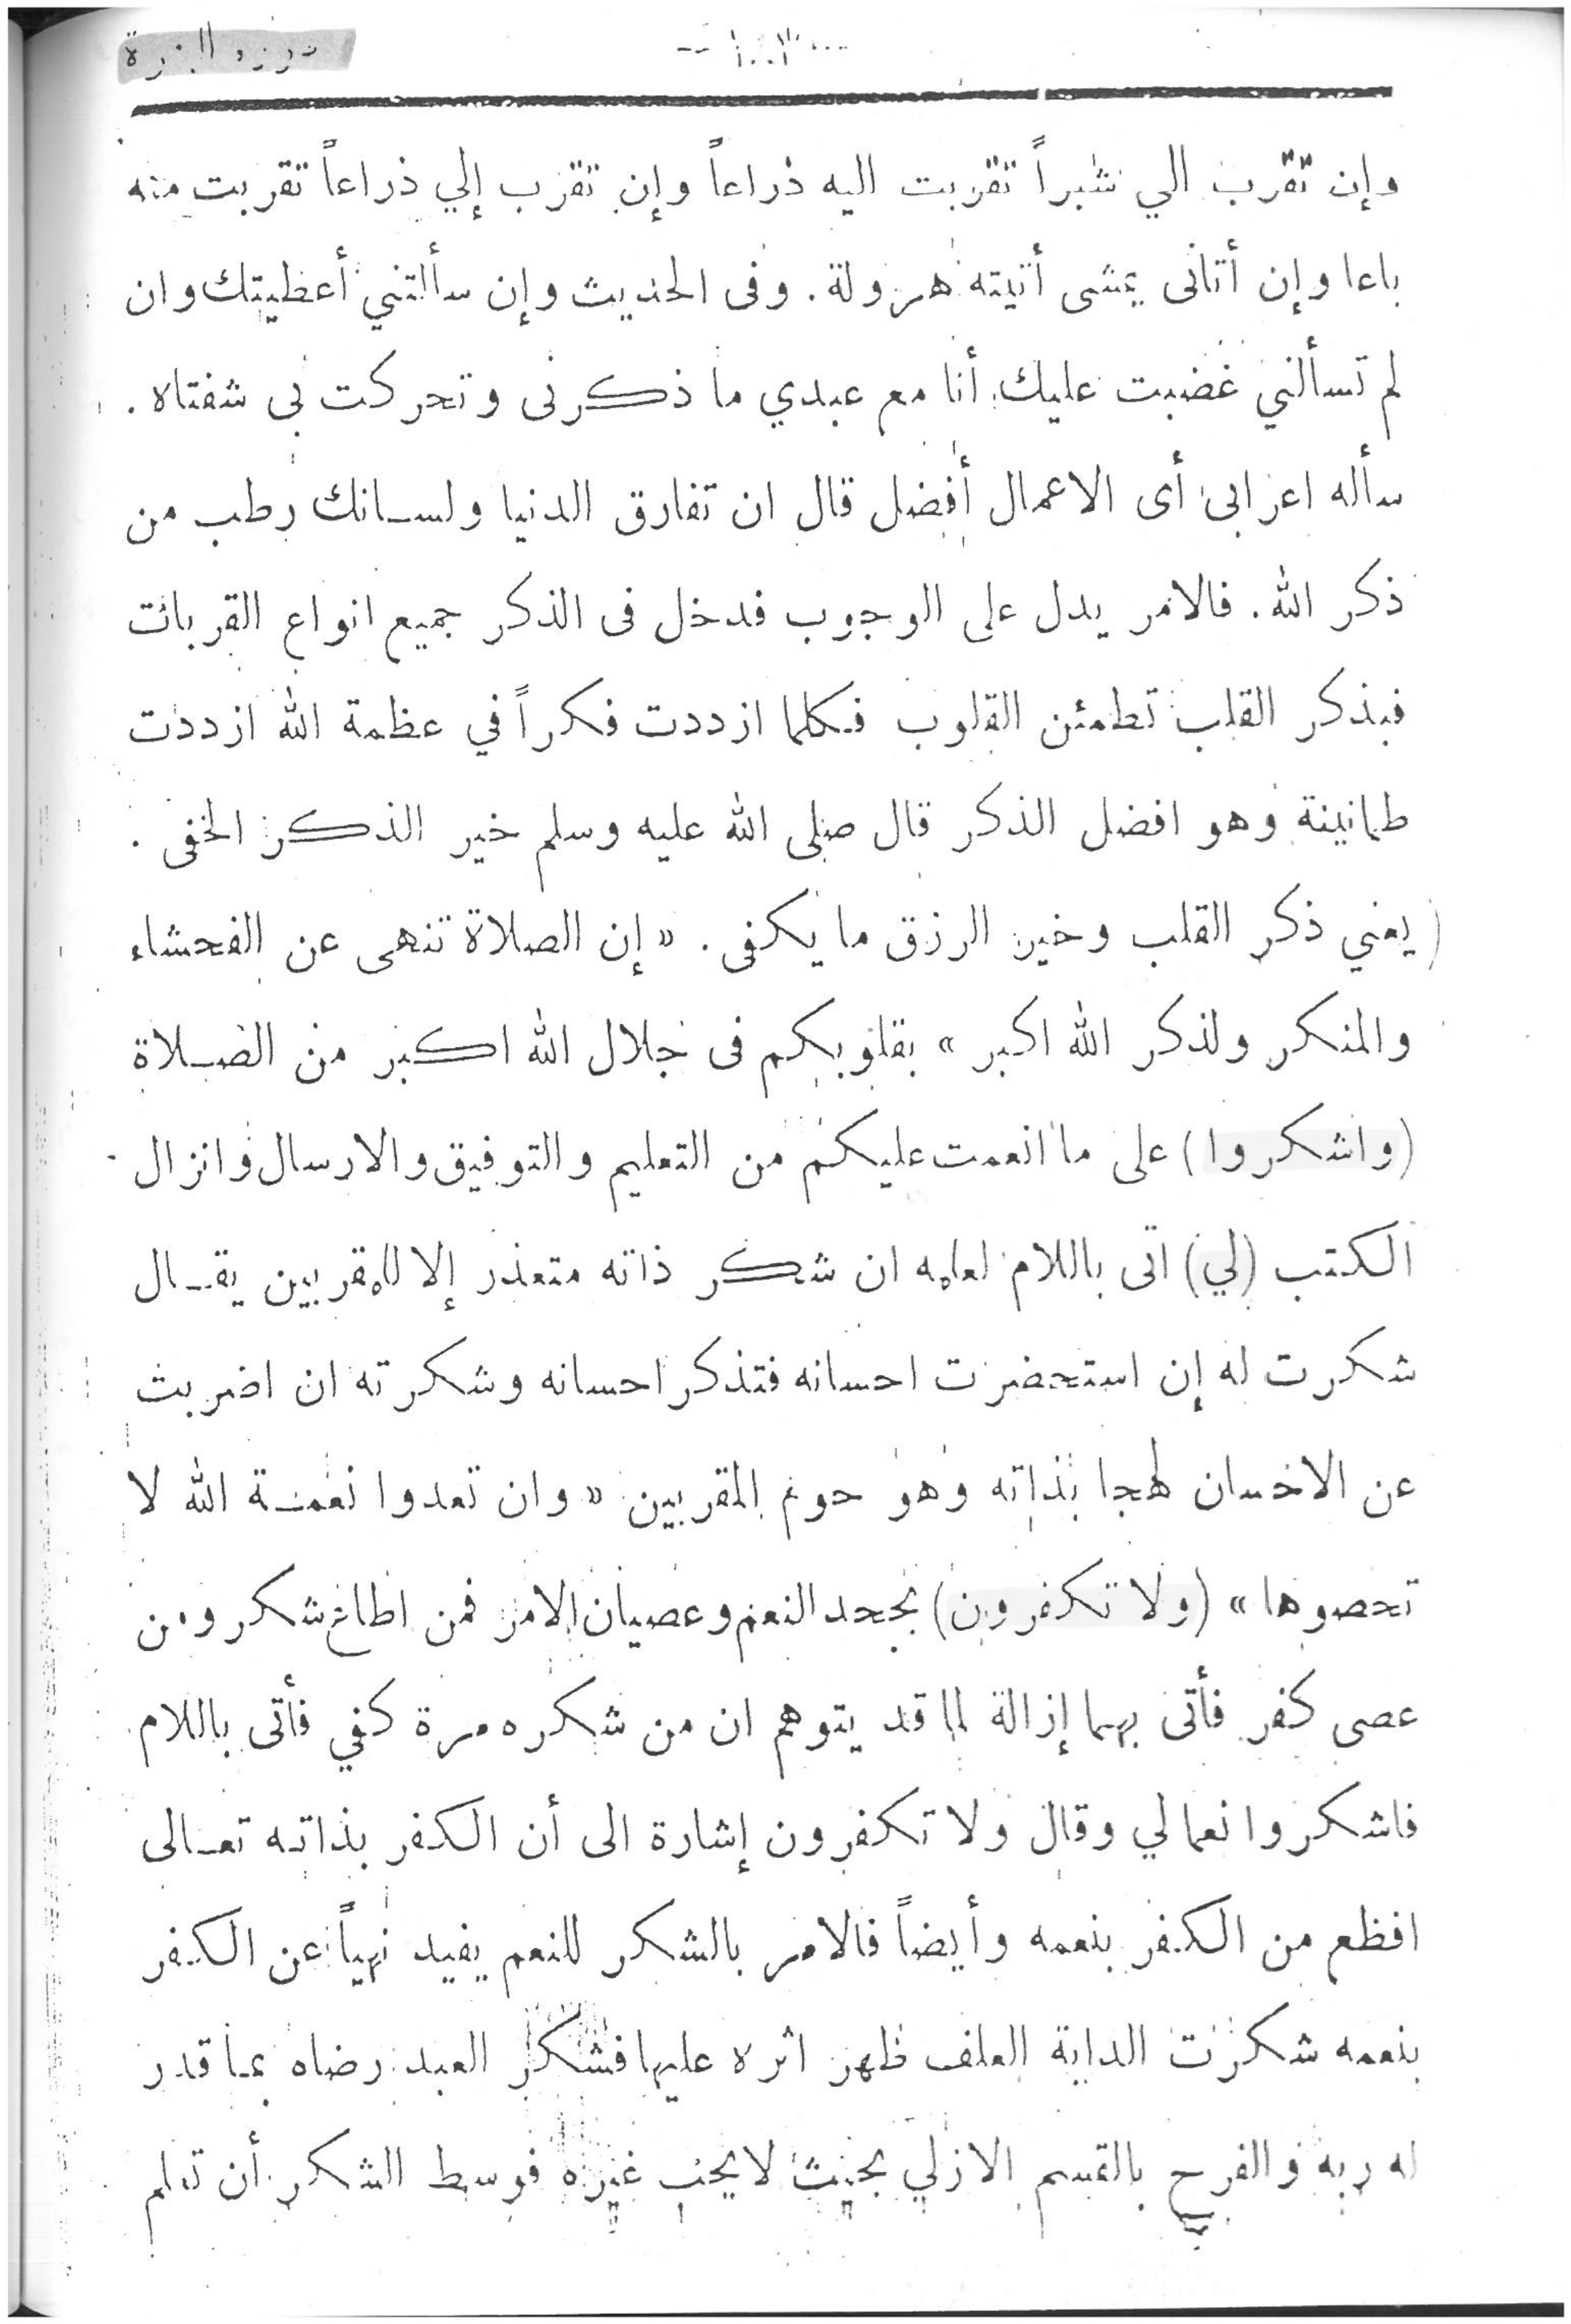 وإن تقرب الي شبراً تقربت اليه ذراعاً وإن تقرب إلي ذراعاً تقربت منه
باعا وإن أتانى يمشى أتيته هرولة. وفى الحديث وإن سألتني أعطيتك وان
لم تسألني غضبت عليك أنا مع عبدي ما ذكرنى وتحركت بى شفتاه.
سأله اعرابى أى الاعمال أفضل قال ان تفارق الدنيا ولسانك رطب من
ذكر الله. فالامر يدل على الوجوب فدخل فى الذكر جميع انواع القربات
فبذكر القلب تطمئن القلوب فكلما ازددت فكراً في عظمة الله ازددت
طمانينة وهو افضل الذكر قال صلى الله عليه وسلم خير الذكر الخفى.
(يعني ذكر القلب وخير الرزق ما يكفى. «إن الصلاة تنهى عن الفحشاء
والمنكر ولذكر الله اكبر» بقلوبكم فى جلال الله اكبر من الصلاة
(واشكروا) على ما انعمت عليكم من التعليم والتوفيق والارسال وانزال
الكتب (لي) اتى باللام لعلمه ان شكر ذاته متعذر إلا للمقربين يقال
شكرت له إن استحضرت احسانه فتذكر احسانه وشكرته ان اضربت
عن الاحسان لهجا بذاته وهو حوم المقربين «وان تعدوا نعمة الله لا
تحصوها» (ولا تكفرون) بجحد النعم وعصيان الامر فمن اطاع شكر ومن
عصى كفر فأتى بهما إزالة لما قد يتوهم ان من شكره مرة كفي فأتى باللام
فاشكروا نعما لي وقال ولا تكفرون إشارة الى أن الكفر بذاته تعالى
افظع من الكفر بنعمه وأيضاً فالامر بالشكر للنعم يفيد نهياً عن الكفر
بنعمه شكرت الدابة العلف ظهر اثره عليها فشكر العبد رضاه بما قدر
له ربه والفرح بالقسم الازلي بحيث لا يحب غيره فوسط الشكر أن تعلم